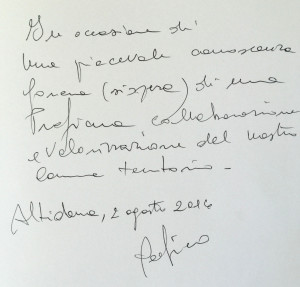 In occasione di
una piacevole conoscenza
foriera (si spera) di una
Proficua collaborazione
e Valorizzazione del nostro
comune territorio -
Altidona, 2 agosto 2014